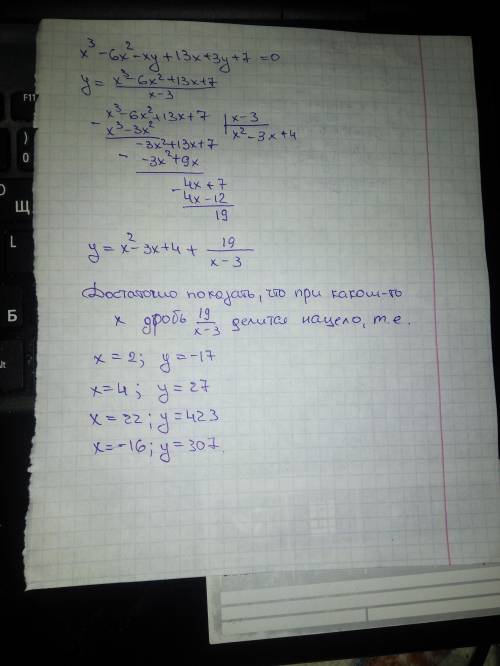 x³ - 6x² - xy + 13x + 3y + 7 = 0
y = (x³ - 6x² + 13x + 7)/(x - 3)
- x³ - 6x² + 13x + 7 | x - 3
x³ - 3x² | x² - 3x + 4
- -3x² + 13x + 7
-3x² + 9x
- 4x + 7
4x - 12
19
y = x² - 3x + 4 + 19/(x - 3)
Достаточно показать, что при каком-то
x дробь 19/(x - 3) делится нацело, т.е.
x = 2; y = -17
x = 4; y = 27
x = 22; y = 423
x = -16; y = 307.
F11
)
0
Щ
L
Б